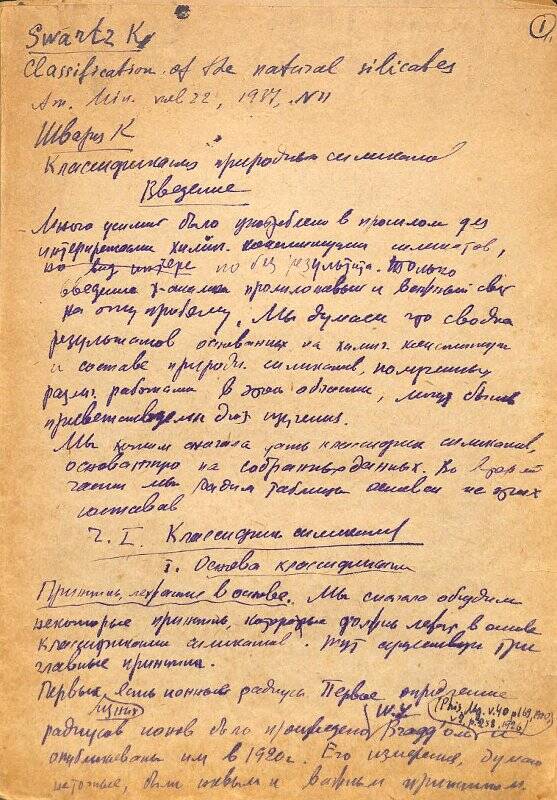 1
Swartz K.
Classification of the natural silicates
Am. Min. vol 22, 1937, N 11
Шварц К
Классификация природных силикатов
Введение
Много усилий было употреблено в прошлом для
интерпретации химич. конституции силикатов,
но без результата. Только
введение х-анализа проливает важный свет
на эту проблему. Мы думаем что сводка
результатов основанных на химич. конституции
и составе природн. силикатов, полученных
разл. работами в этой области, могут быть
для изучения.
Мы хотим сначала дать классифик силикатов,
основанную на собранных данных. Во второй
части мы дадим таблицы на этих
составах
Ч. I. Классифик силикатов
1. Основа классификации
Принципы, лежащие в основе. Мы сначала обсудим
некоторые принципы, которые должны лежать в основе
классификации силикатов. Тут три
главные принципа.
Первых есть ионные радиусы Первое определение
(Phis, Mg. v. 40 p 169
радиусов ионов было произведено и
опубликованы им в 1920г. Его измерения,
были новым и важным принципом.